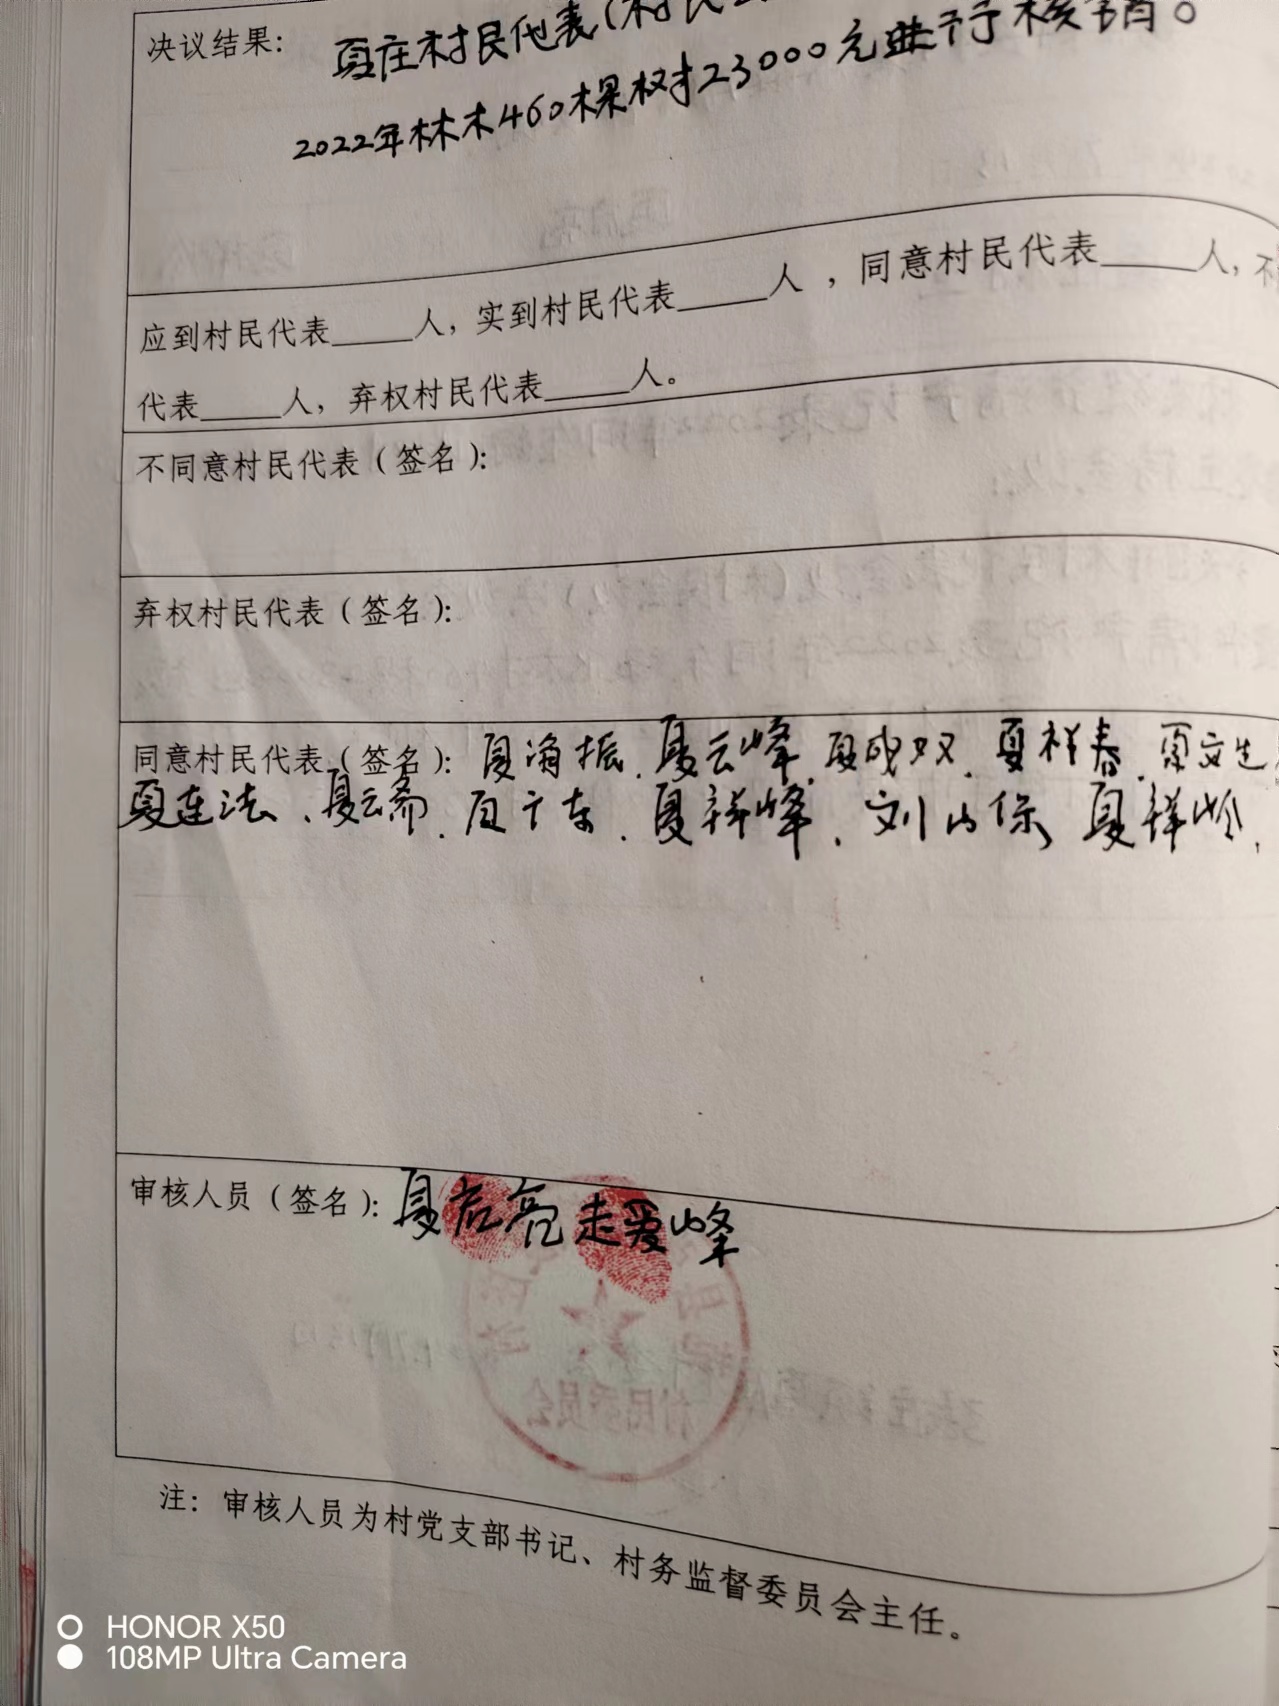 决议结果：夏庄村民代表（村民
2022年林木460棵树23000元进行核销。
应到村民代表_____人，实到村民代表_____人，同意村民代表_____人，不
代表_____人，弃权村民代表_____人。
不同意村民代表（签名）：
弃权村民代表（签名）：
同意村民代表（签名）：夏海振、夏云峰、夏成双、夏祥春、夏文生
夏连法、夏云斋、夏广东、夏祥峰、刘山保 夏祥岭、
审核人员（签名）：夏启亮 走爱峰
村民委员会
注：审核人员为村党支部书记、村务监督委员会主任。
HONOR X50
108MP Ultra Camera